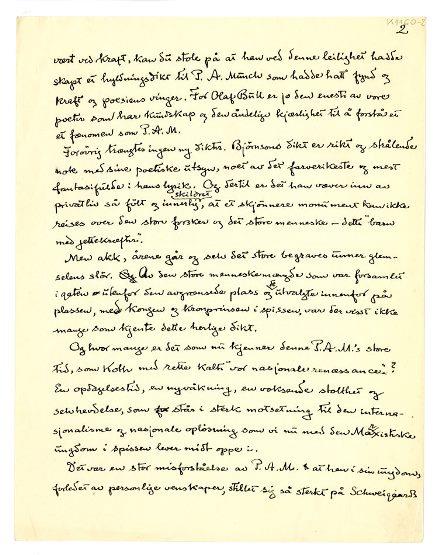 2
vært ved kraft, kan du stole på at han ved denne leilighet hadde
skapt et hyldningsdikt til P. A. Munch som hadde hatt fynd og
kraft og poesiens vinger. For Olaf Bull er jo den eneste av vore
poeter som har kundskap og den åndelige kjærlighet til å forstå et
et fænomen som P.A.M.
Forøvrig trængtes ingen ny diktn. Bjørnsons dikt er rikt og strålende
nok med sine poetiske utsyn, noet av det farverikeste og mest
fantasifulde i hans lyrik. Og dertil er det han væver inn av
privatliv så fult og inderlig skildret, at et skjønnere monument kan ikke
reises over den store forsker og det store menneske – dette "barn
med jettekræfter".
Men akk, årene går og selv det store begraves unner glem-
selens slør. Av den store menneskemængde som var forsamlet
i gaten utenfor den avgrænsede plass og de utvalgte innenfor på
plassen, med Kongen og Kronprinsen i spissen, var det visst ikke
mange som kjente dette herlige dikt.
Og hvor mange er det som nu kjenner denne P.A.M.'s store
tid, som Koht med rette kalte "vor nasjonale renæssance"?
En opdagelsestid, en nyvåkning, en voksende stolthet og
selvhevdelse, som står i sterk motsetning til den interna-
sjonalisme og nasjonale opløsning som vi nu med den Marxistiske
ungdom i spissen lever midt oppe i.
Det var en stor misforståelse av P.A.M. at han i sin ungdom,
forledet av personlige venskaper, stillet sig så sterkt på Schweigaards